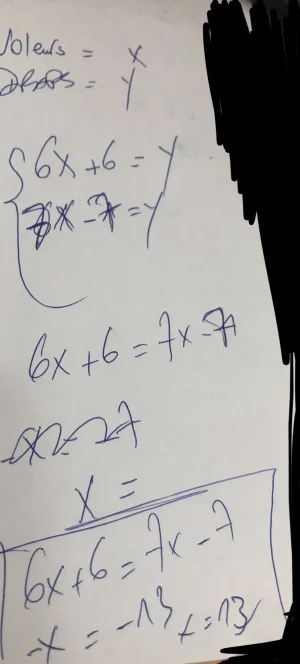 Voleurs = x
Draps = y
6x + 6 = y
7x - 7 = y
6x + 6 = 7x - 7
x =
6x + 6 = 7x - 7
-x = -13 x = 13